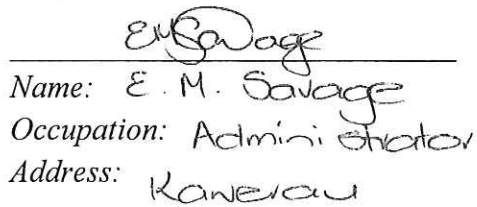 EMSavage
Name: E. M. Savage
Occupation: Administrator
Address: Kawerau